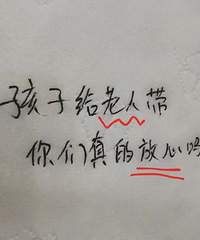 孩子给老人带
你们真的放心吗